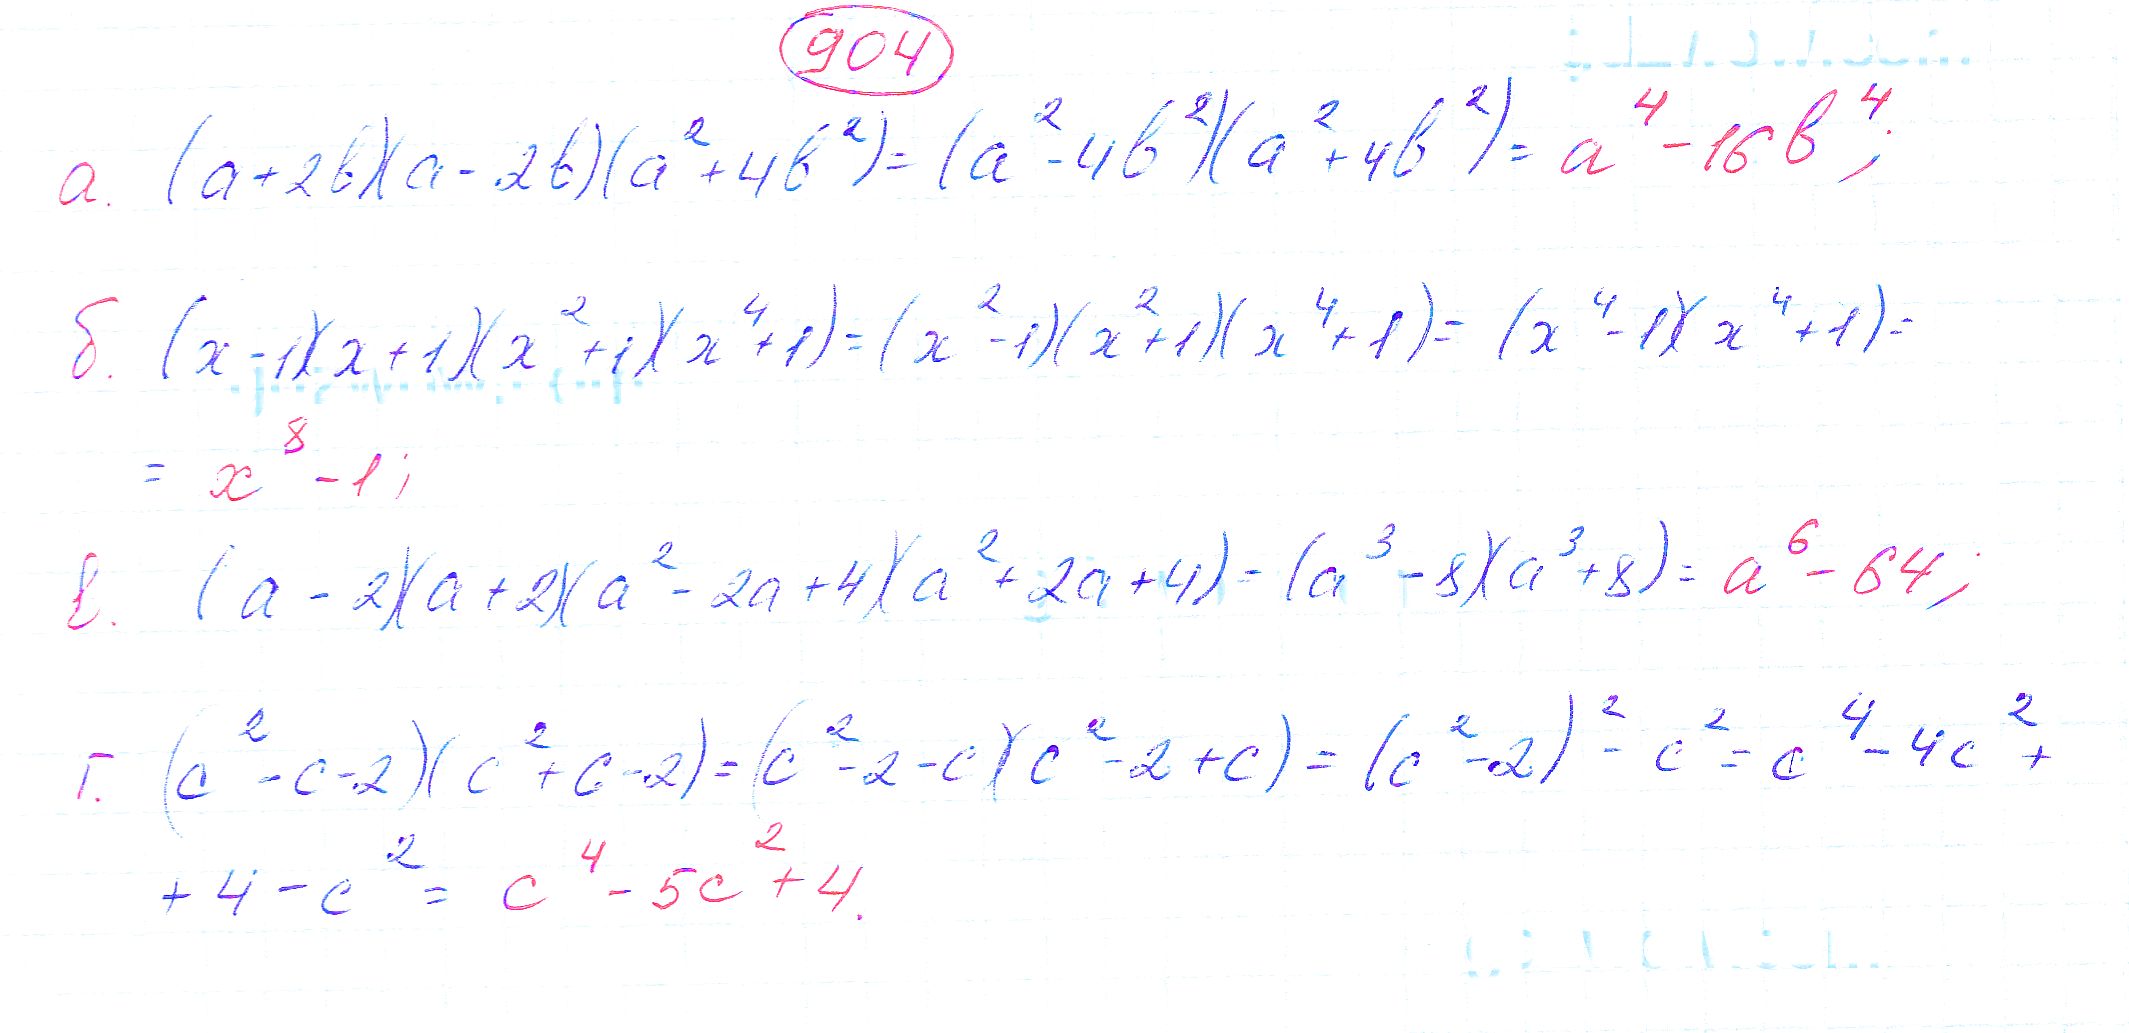 904
а. (a+2b)(a-2b)(a²+4b²)=(a²-4b²)(a²+4b²)=a⁴-16b⁴;
б. (x-1)(x+1)(x²+1)(x⁴+1)=(x²-1)(x²+1)(x⁴+1)=(x⁴-1)(x⁴+1)=
=x⁸-1;
в. (a-2)(a+2)(a²-2a+4)(a²+2a+4)=(a³-8)(a³+8)=a⁶-64;
г. (c²-c-2)(c²+c-2)=(c²-2-c)(c²-2+c)=(c²-2)²-c²=c⁴-4c²+
+4-c²=c⁴-5c²+4.